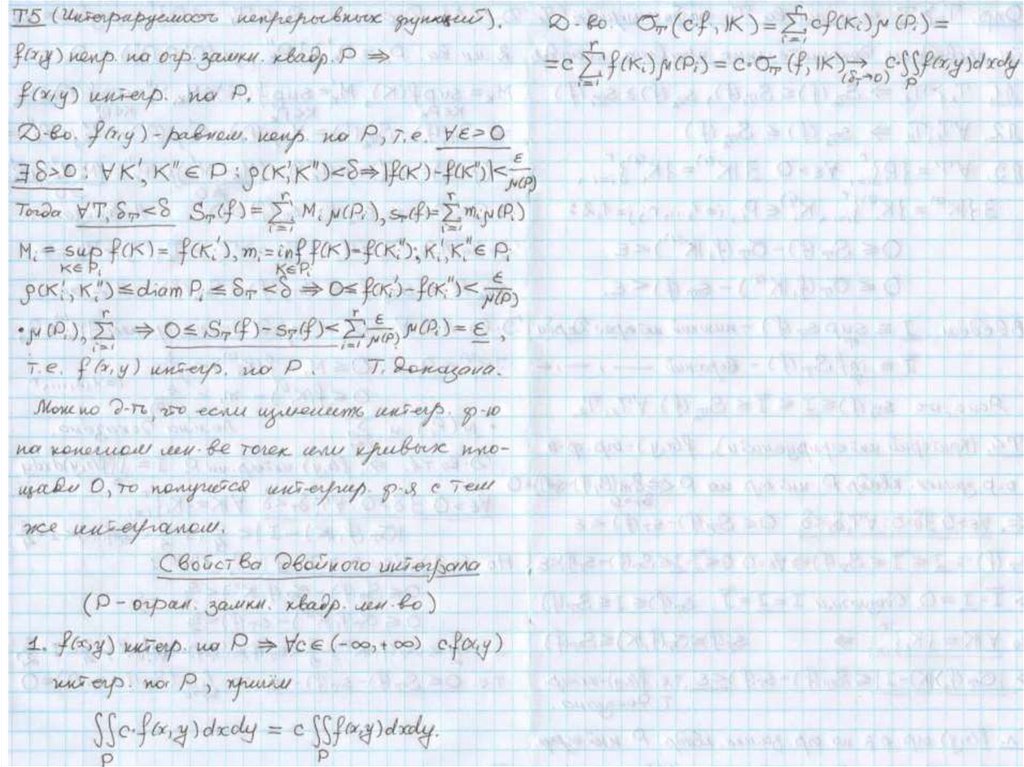 Т5 (Интегрируемость непрерывных функций).
f(x,y) непр. на огр. замкн. квадр. P ⇒
f(x,y) интегр. на P.
Д-во. f(x,y) - равном. непр. на P, т.е. ∀ε>0
∃δ>0: ∀K', K'' ∈ P: ρ(K', K'')<δ ⇒ |f(K') - f(K'')| < ε/μ(P)
Тогда ∀T, δ_T<δ S_T(f) = ∑_{i=1}^{r} M_i μ(P_i), s_T(f) = ∑_{i=1}^{r} m_i μ(P_i)
M_i = sup_{K∈P_i} f(K) = f(K_i'), m_i = inf_{K∈P_i} f(K) = f(K_i''); K_i', K_i'' ∈ P_i
ρ(K_i', K_i'') ≤ diam P_i ≤ δ_T < δ ⇒ 0 ≤ f(K_i') - f(K_i'') < ε/μ(P)
• μ(P_i), ∑_{i=1}^{r} ⇒ 0 ≤ S_T(f) - s_T(f) < ∑_{i=1}^{r} ε/μ(P) μ(P_i) = ε,
т.е. f(x,y) интегр. на P. Т. доказана.
Можно д-ть, что если изменить интегр. ф-ю
на конечном мн-ве точек или кривых пло-
щади 0, то получится интегрир. ф-я с тем
же интегралом.
Свойства двойного интеграла
(P - огран. замкн. квадр. мн-во)
1. f(x,y) интегр. на P ⇒ ∀c ∈ (-∞, +∞) c f(x,y)
интегр. на P, причём
∬_P c·f(x,y) dxdy = c ∬_P f(x,y) dxdy.
Д-во. σ_T(cf, K) = ∑_{i=1}^{r} cf(K_i) μ(P_i) =
= c ∑_{i=1}^{r} f(K_i) μ(P_i) = c·σ_T(f, K) →_{(δ_T→0)} c·∬_P f(x,y) dxdy